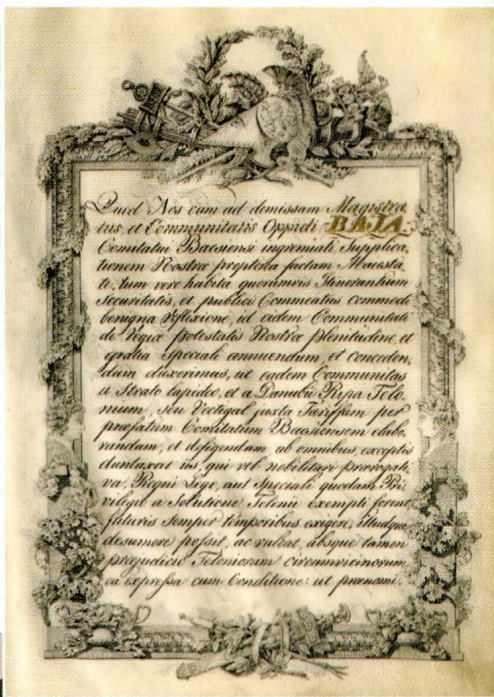 Quod Nos cum ad demissam Magistra
tus, et Communitatis Oppidi BAJA
Comitatui Bacsiensi ingremiati Supplica
tionem Nostræ propterea factam Maiesta
ti, tum vero habita quorumvis Itinerantium
Securitatis, et publici Commeatus commodi
benigna reflexione, id eidem Communitati
de Regiæ potestatis Nostræ plenitudine, et
gratia speciali annuendum, et conceden,
dum duxerimus, ut eadem Communitas
a Strato lapideo, et a Danubii Ripa Telo,
nium, seu Vectigal juxta Tariffam per
præfatum Comitatum Bacsiensem elabo,
randam, et defigendam ab omnibus, exceptis
duntaxat iis, qui vel nobilitari prærogati,
va, Regni Lege, aut Speciali quodam Pri,
vilegio a Solutione Telonii exempti forent,
futuris semper temporibus exigere, illudque
desumere possint, ac valeat, absque tamen
præjudicio Teloniorum circumvicinorum,
ea expressa cum Conditione: ut prænomi,